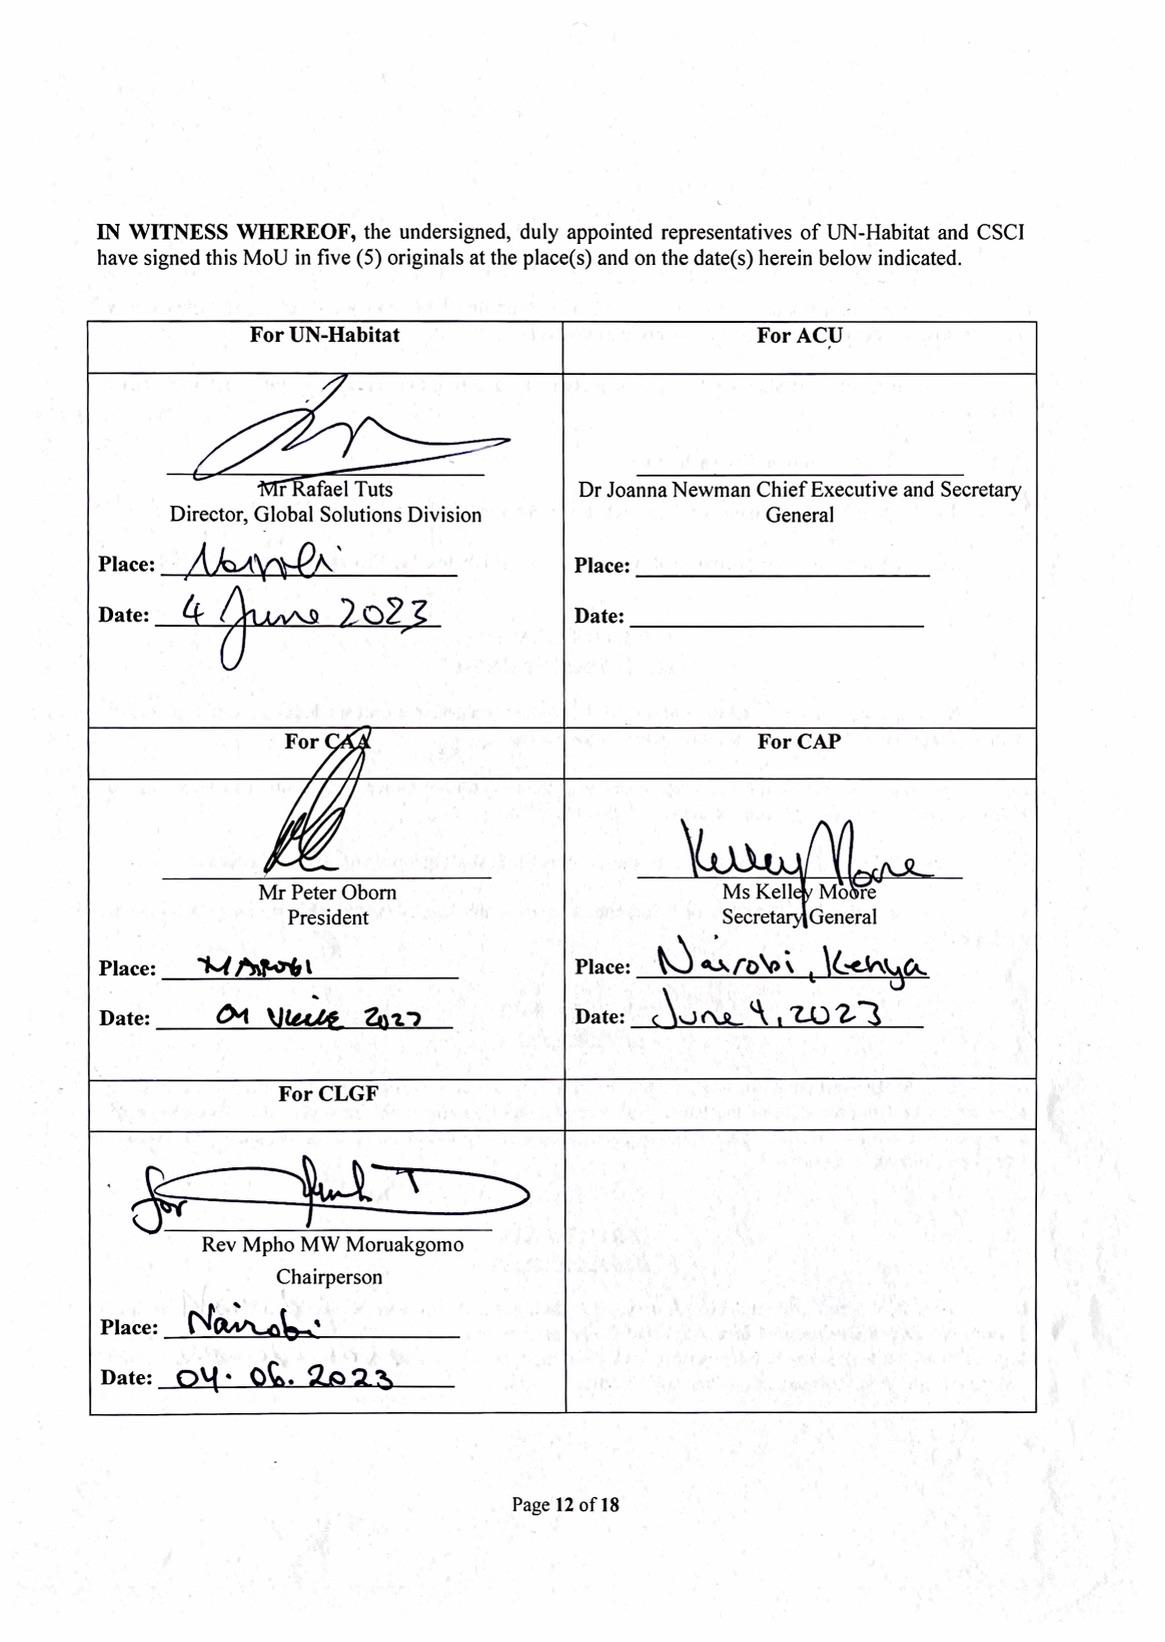 IN WITNESS WHEREOF, the undersigned, duly appointed representatives of UN-Habitat and CSCI
have signed this MoU in five (5) originals at the place(s) and on the date(s) herein below indicated.
For UN-Habitat
For ACU
Mr Rafael Tuts
Director, Global Solutions Division
Place: Nairobi
Date: 4 June 2023
Dr Joanna Newman Chief Executive and Secretary
General
Place:
Date:
For CAA
For CAP
Mr Peter Oborn
President
Place:
Date:
Kelley Moore
Ms Kelley Moore
Secretary General
Place: Nairobi, Kenya
Date: June 4, 2023
For CLGF
for
Rev Mpho MW Moruakgomo
Chairperson
Place: Nairobi
Date: 04.06.2023
Page 12 of 18